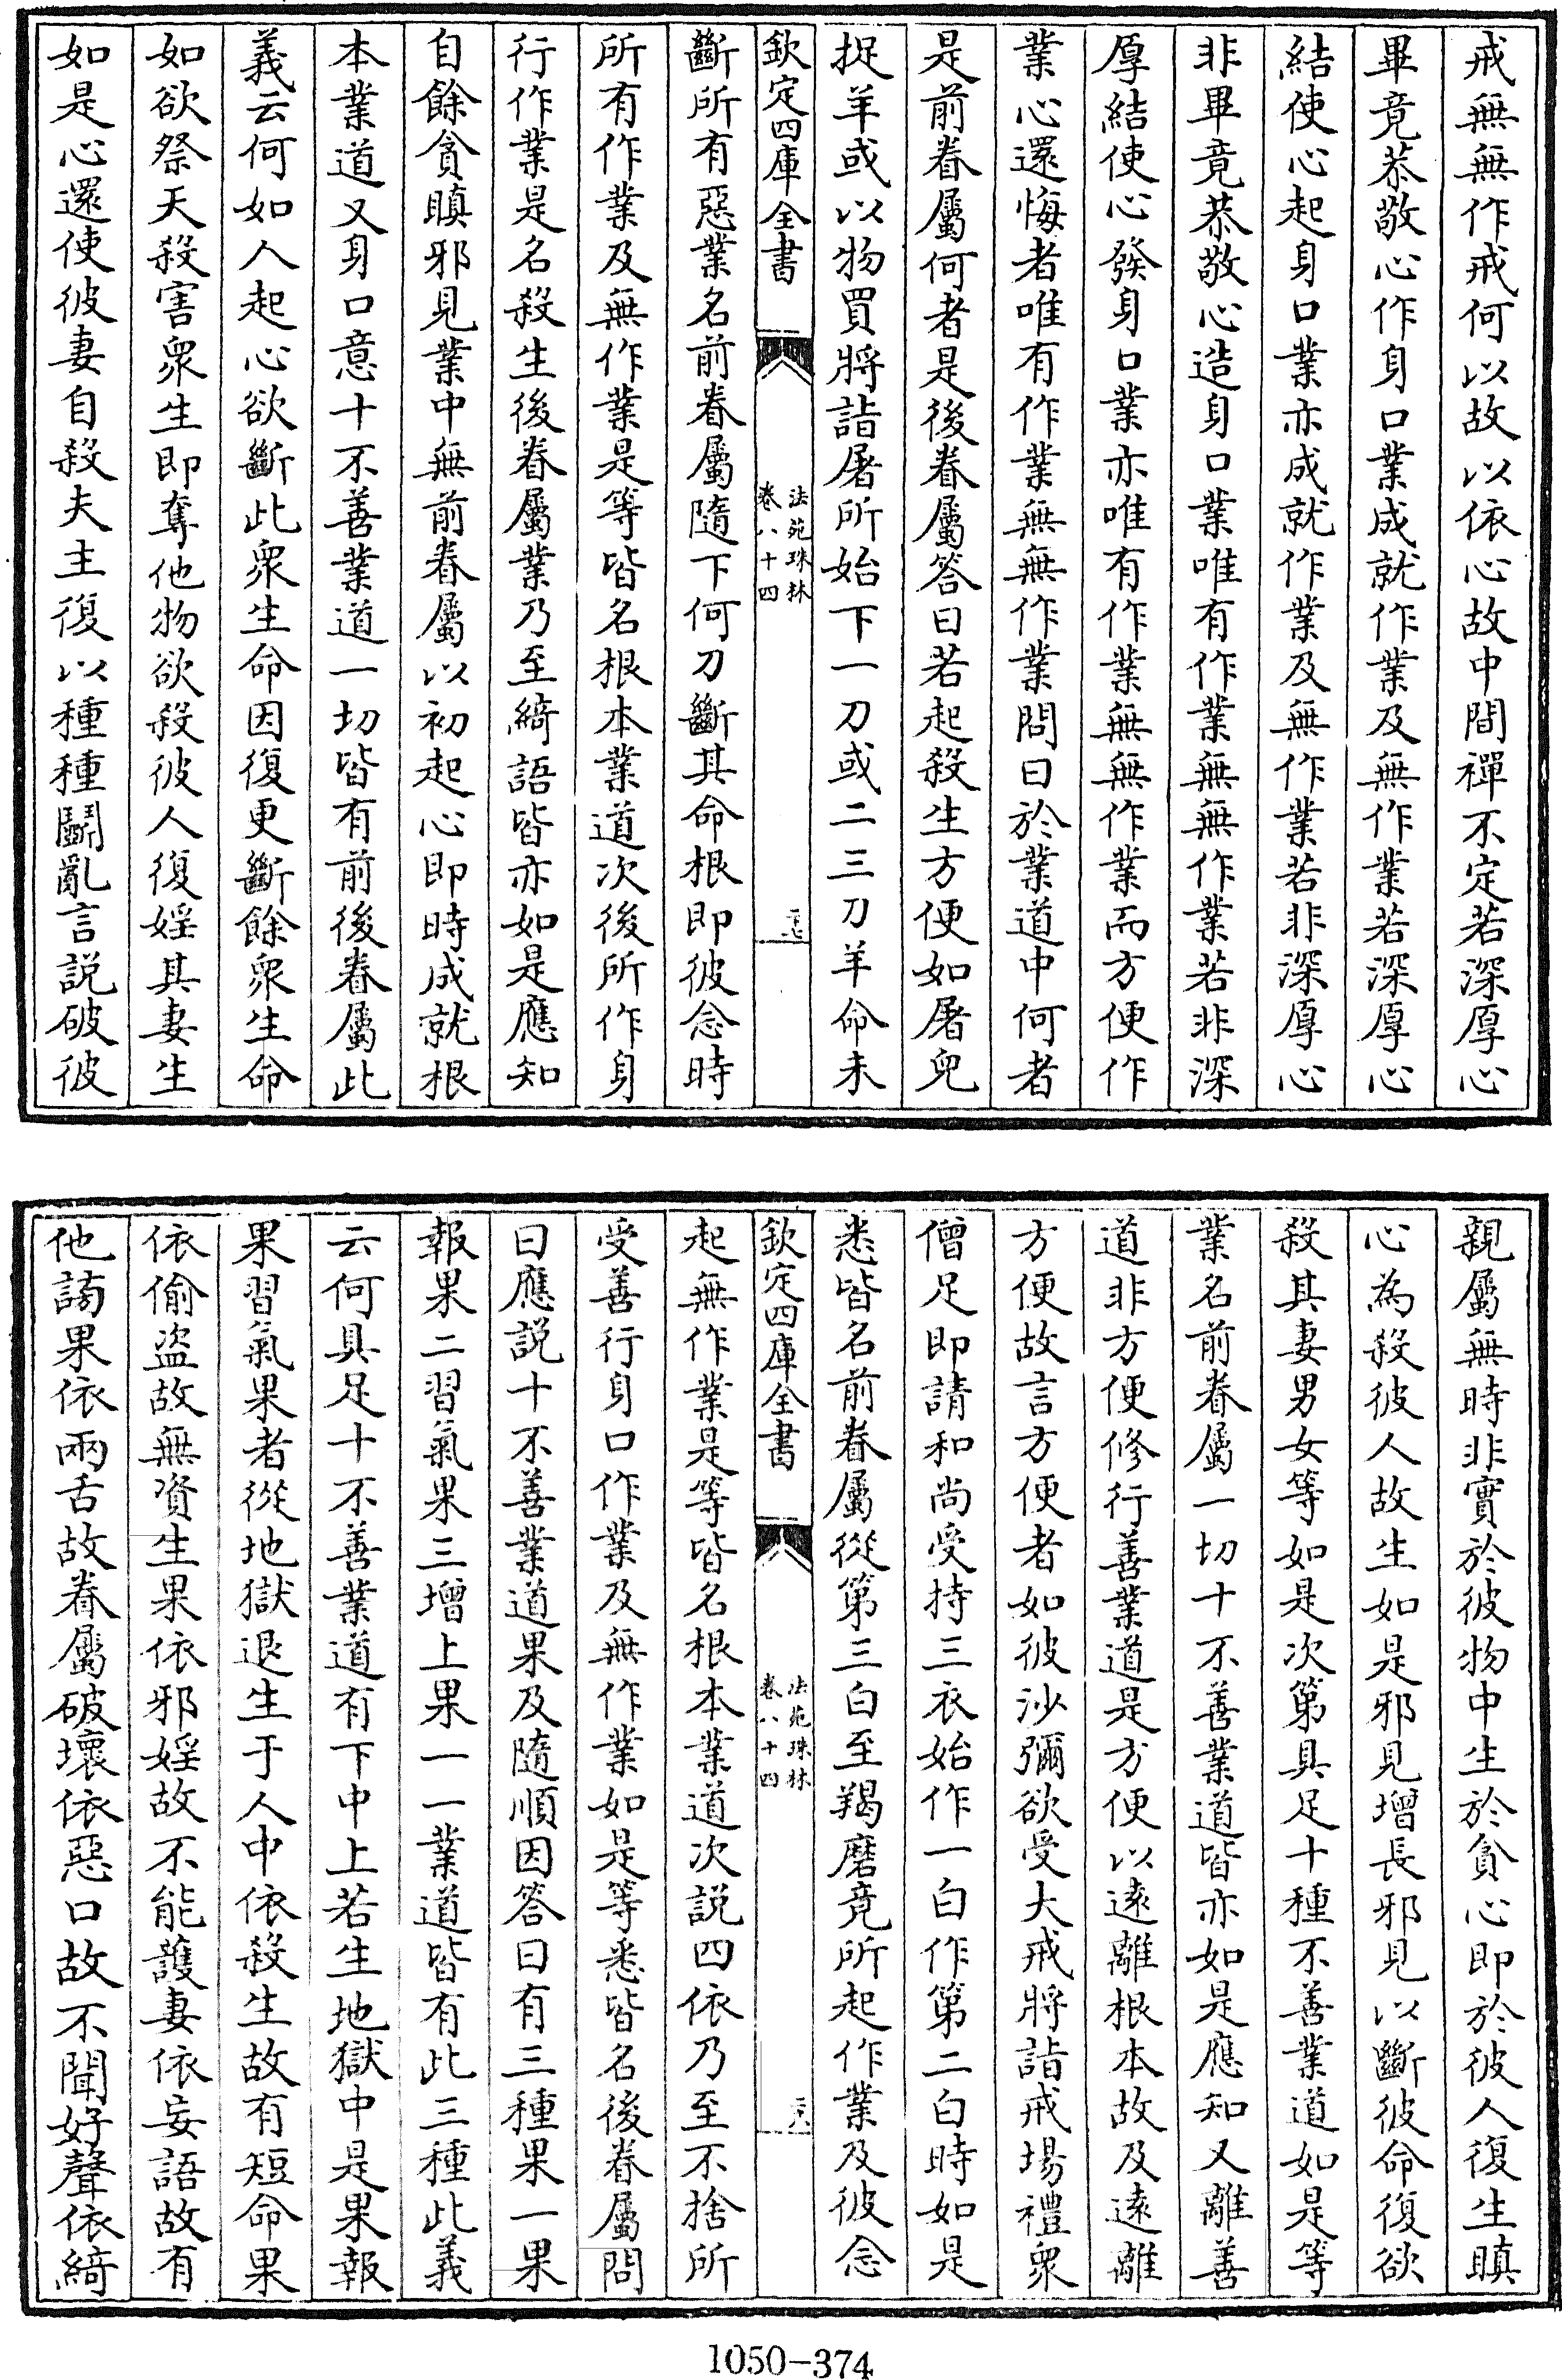 戒無無作戒何以故以依心故中間禪不定若深厚心
畢竟恭敬心作身口業成就作業及無作業若深厚心
結使心起身口業亦成就作業及無作業若非深厚心
非畢竟恭敬心造身口業唯有作業無無作業若非深
厚結使心發身口業亦唯有作業無無作業而方便作
業心還悔者唯有作業無無作業問曰於業道中何者
是前眷屬何者是後眷屬答曰若起殺生方便如屠兒
捉羊或以物買將詣屠所始下一刀或二三刀羊命未
欽定四庫全書
法苑珠林
卷八十四
二十七
斷所有惡業名前眷屬隨下何刀斷其命根即彼念時
所有作業及無作業是等皆名根本業道次後所作身
行作業是名殺生後眷屬業乃至綺語皆亦如是應知
自餘貪瞋邪見業中無前眷屬以初起心即時成就根
本業道又身口意十不善業道一切皆有前後眷屬此
義云何如人起心欲斷此衆生命因復更斷餘衆生命
如欲祭天殺害衆生即奪他物欲殺彼人復婬其妻生
如是心還使彼妻自殺夫主復以種種鬭亂言説破彼
親屬無時非實於彼物中生於貪心即於彼人復生瞋
心為殺彼人故生如是邪見增長邪見以斷彼命復欲
殺其妻男女等如是次第具足十種不善業道如是等
業名前眷屬一切十不善業道皆亦如是應知又離善
道非方便修行善業道是方便以遠離根本故及遠離
方便故言方便者如彼沙彌欲受大戒將詣戒場禮衆
僧足即請和尚受持三衣始作一白作第二白時如是
悉皆名前眷屬從第三白至羯磨竟所起作業及彼念
欽定四庫全書
法苑珠林
卷八十四
二十八
起無作業是等皆名根本業道次説四依乃至不捨所
受善行身口作業及無作業如是等悉皆名後眷屬問
曰應説十不善業道果及隨順因答曰有三種果一果
報果二習氣果三增上果一一業道皆有此三種此義
云何具足十不善業道有下中上若生地獄中是果報
果習氣果者從地獄退生于人中依殺生故有短命果
依偷盜故無資生果依邪婬故不能護妻依妄語故有
他謗果依兩舌故眷屬破壞依惡口故不聞好聲依綺
1050-374